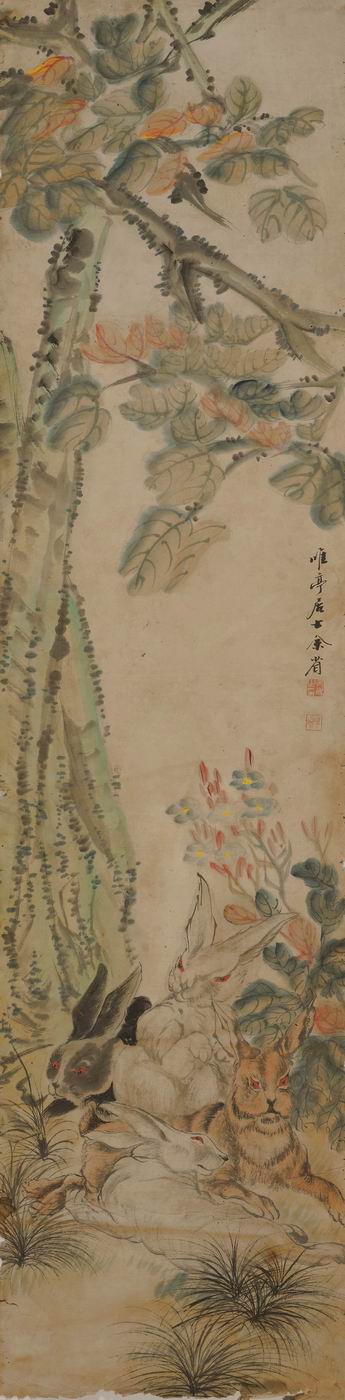 唯亭居士余省